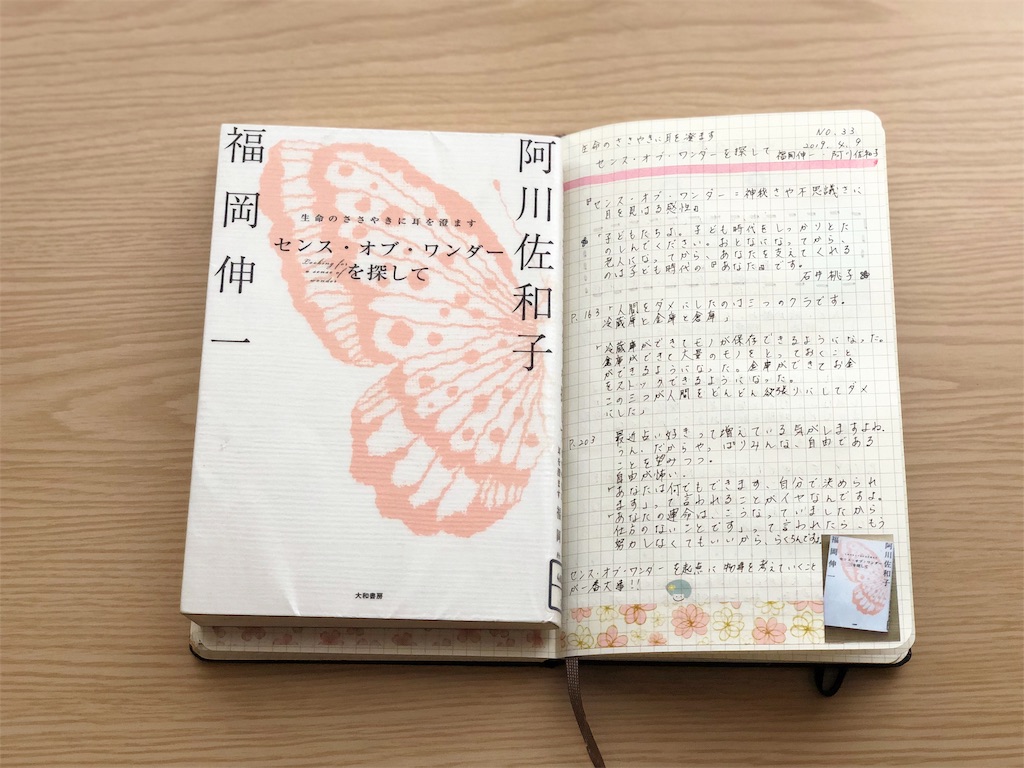 福岡伸一
阿川佐和子
生命のささやきに耳を澄ます
センス・オブ・ワンダー
を探して
Looking for
a sense of
wonder
大和書房
生命のささやきに耳を澄ます
NO.33
センス・オブ・ワンダーを探して
2019.4.9
福岡伸一 阿川佐和子
『センス・オブ・ワンダー=神秘さや不思議さに
目を見はる感性』
「子どもたちよ。子ども時代をしっかりとた
のしんでください。おとなになってから、
老人になってから、あなたを支えてくれる
のは子ども時代の『あなた』です。
石井桃子
P.163「人間をダメにしたのは三つのクラです。
冷蔵庫と金庫と倉庫」
「冷蔵庫ができてモノが保存できるようになった。
倉庫ができて大量のモノをとっておくこと
ができるようになった。金庫ができてお金
をストックできるようになった。
この三つが人間をどんどん欲張りにしてダメ
にした」
P.203 最近占い好きって増えている気がしますよね、
うん、だからやっぱりみんな、自由である
ことを望みつつ。
自由が怖い。
「あなたは何でもできます、自分で決められ
ます」って言われることがイヤなんですよ。
「あなたの運命は、こうなっていましたから
仕方のないことです」って言われたら、もう
努力しなくてもいいから、らくちんですよ
センス・オブ・ワンダーを起点に物事を考えていくこと
が一番大事!!
福岡伸一
阿川佐和子